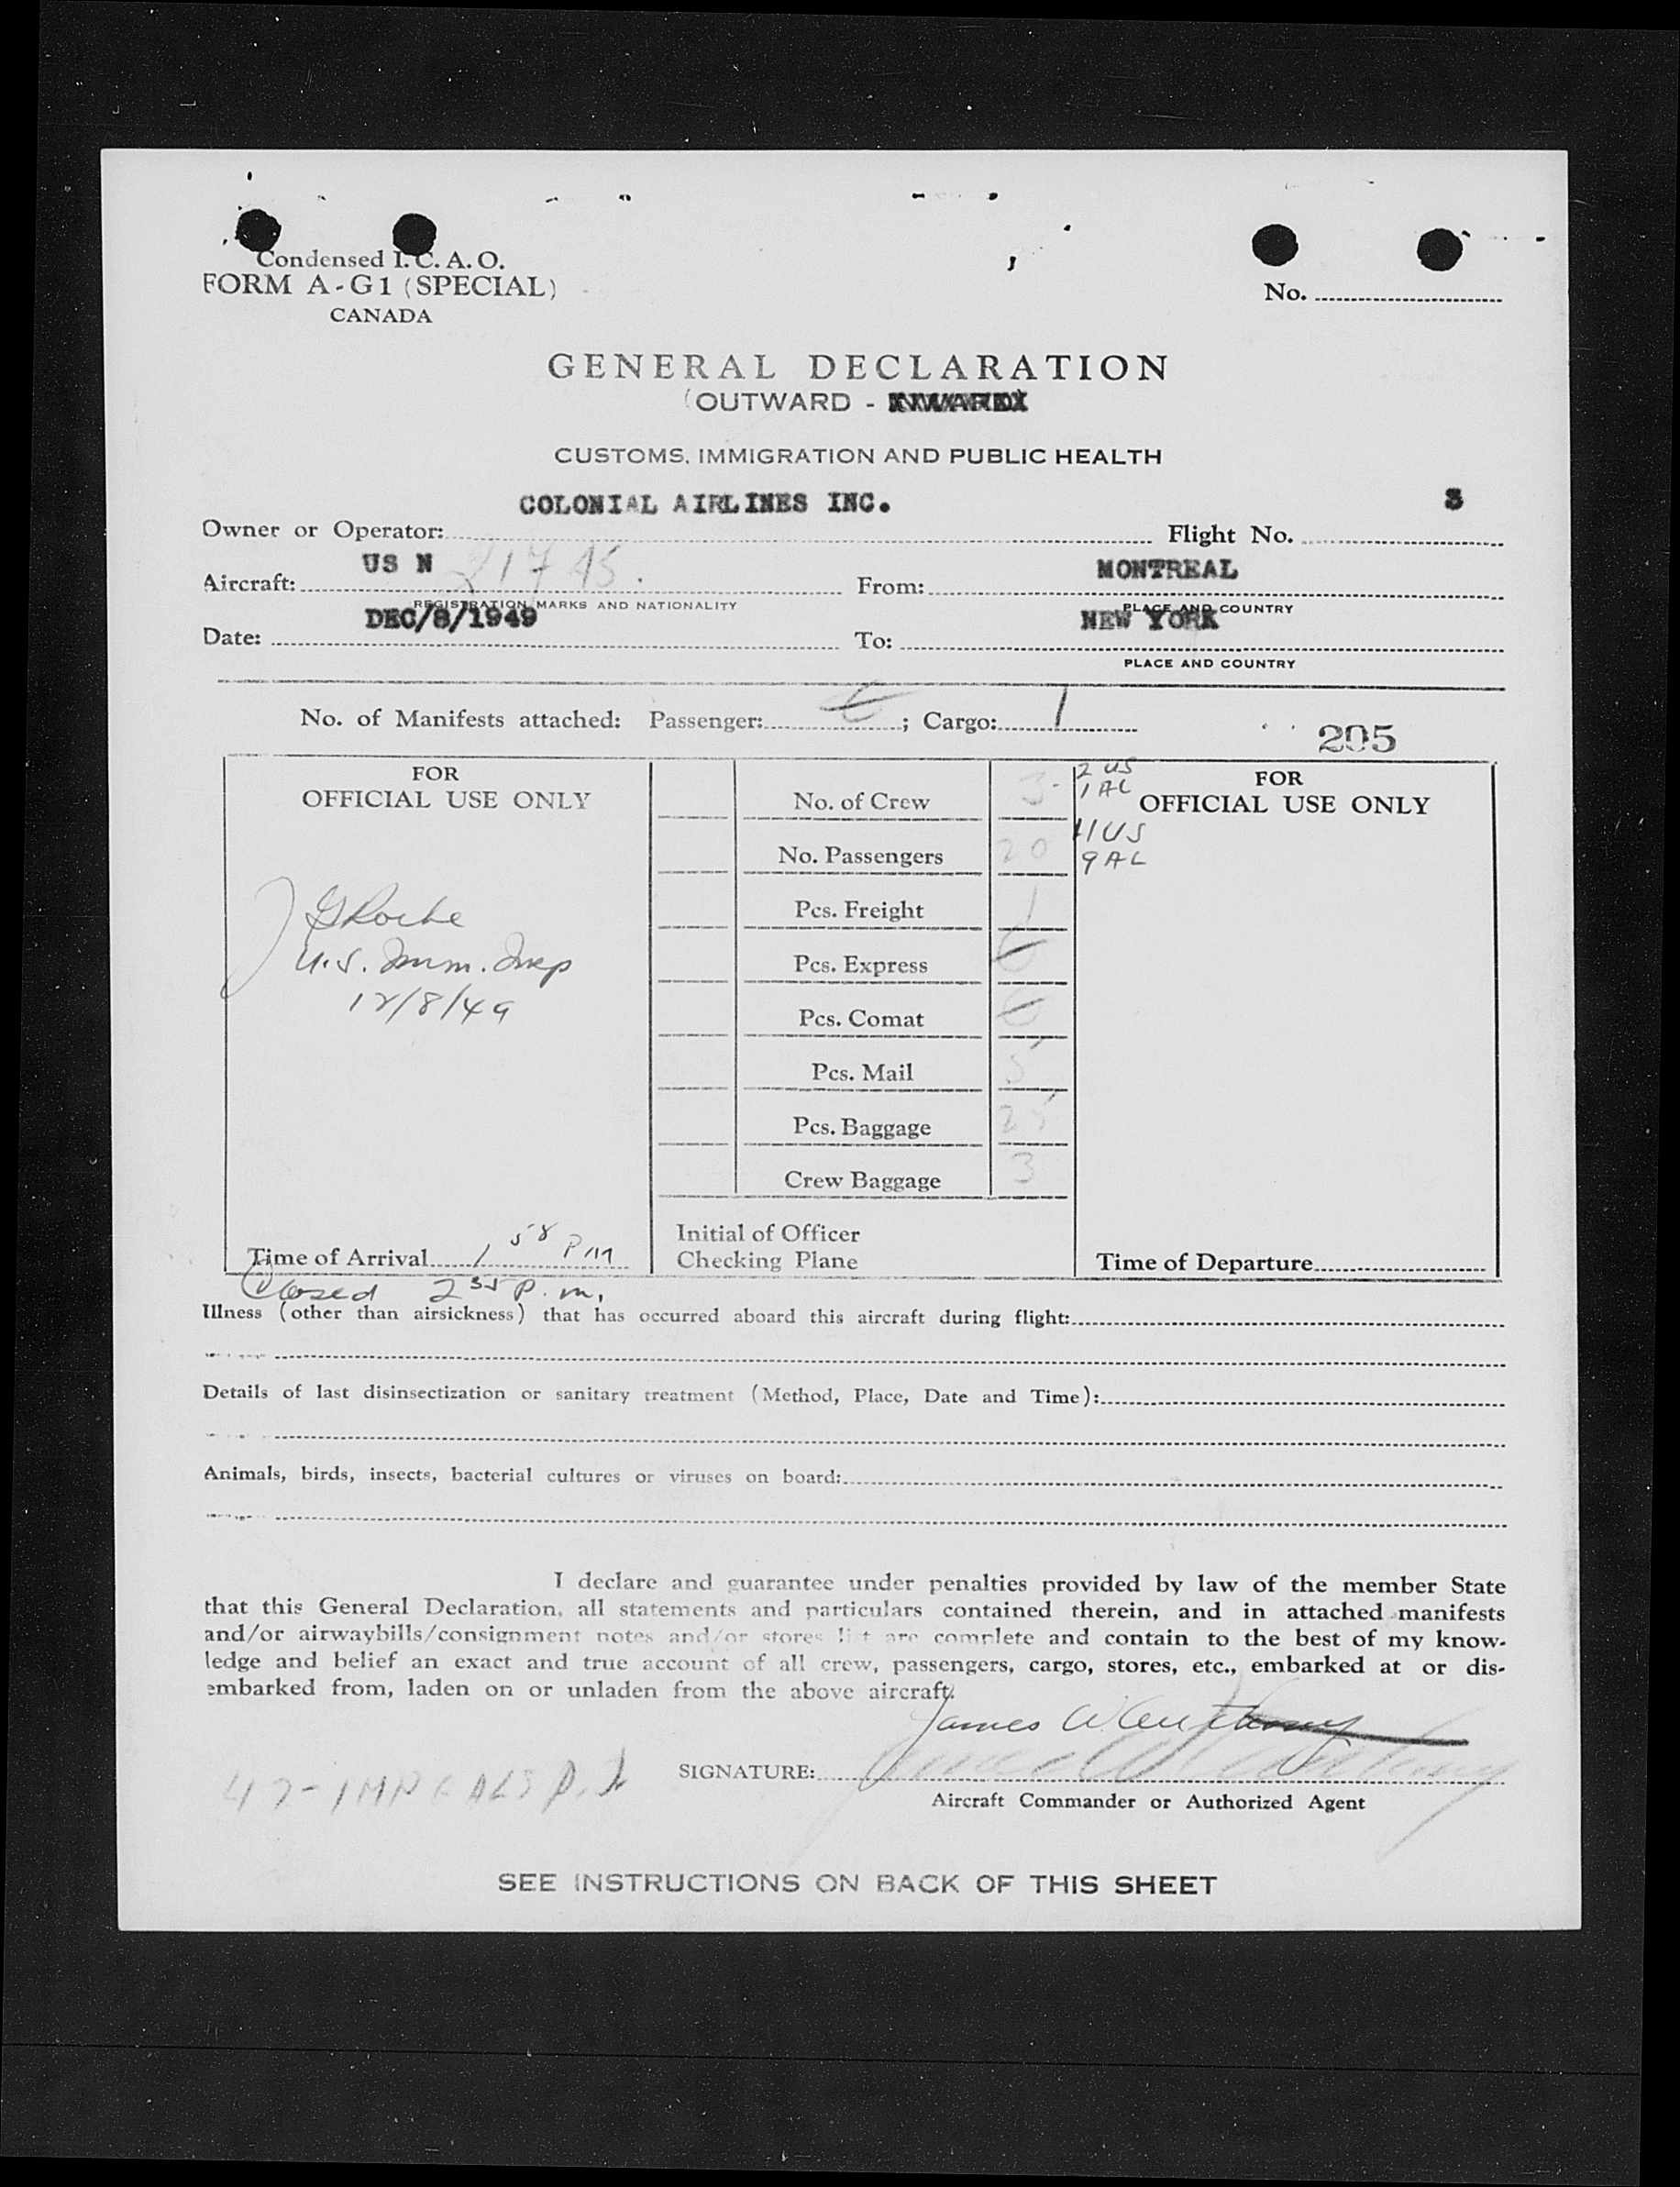 Condensed I. C. A. O.
FORM A-G1 (SPECIAL)
CANADA
No.
GENERAL DECLARATION
(OUTWARD - INWARD)
CUSTOMS, IMMIGRATION AND PUBLIC HEALTH
Owner or Operator: COLONIAL AIRLINES INC. Flight No. 3
Aircraft: US N 21745 From: MONTREAL
REGISTRATION MARKS AND NATIONALITY PLACE AND COUNTRY
Date: DEC/8/1949 To: NEW YORK
PLACE AND COUNTRY
No. of Manifests attached: Passenger: ; Cargo: 1
205
FOR OFFICIAL USE ONLY
Roche
U.S. Imm. Insp
12/8/49
Time of Arrival 1 58 PM
Closed 2 35 P.m.
No. of Crew 3 2 US 1 AL
No. Passengers 20 11 US 9 AL
Pcs. Freight 1
Pcs. Express
Pcs. Comat
Pcs. Mail 5
Pcs. Baggage 25
Crew Baggage 3
Initial of Officer
Checking Plane
FOR
OFFICIAL USE ONLY
Time of Departure
Illness (other than airsickness) that has occurred aboard this aircraft during flight:
Details of last disinsectization or sanitary treatment (Method, Place, Date and Time):
Animals, birds, insects, bacterial cultures or viruses on board:
I declare and guarantee under penalties provided by law of the member State
that this General Declaration, all statements and particulars contained therein, and in attached manifests
and/or airwaybills/consignment notes and/or stores list are complete and contain to the best of my know-
ledge and belief an exact and true account of all crew, passengers, cargo, stores, etc., embarked at or dis-
embarked from, laden on or unladen from the above aircraft.
James W Anthony
SIGNATURE:
Aircraft Commander or Authorized Agent
SEE INSTRUCTIONS ON BACK OF THIS SHEET